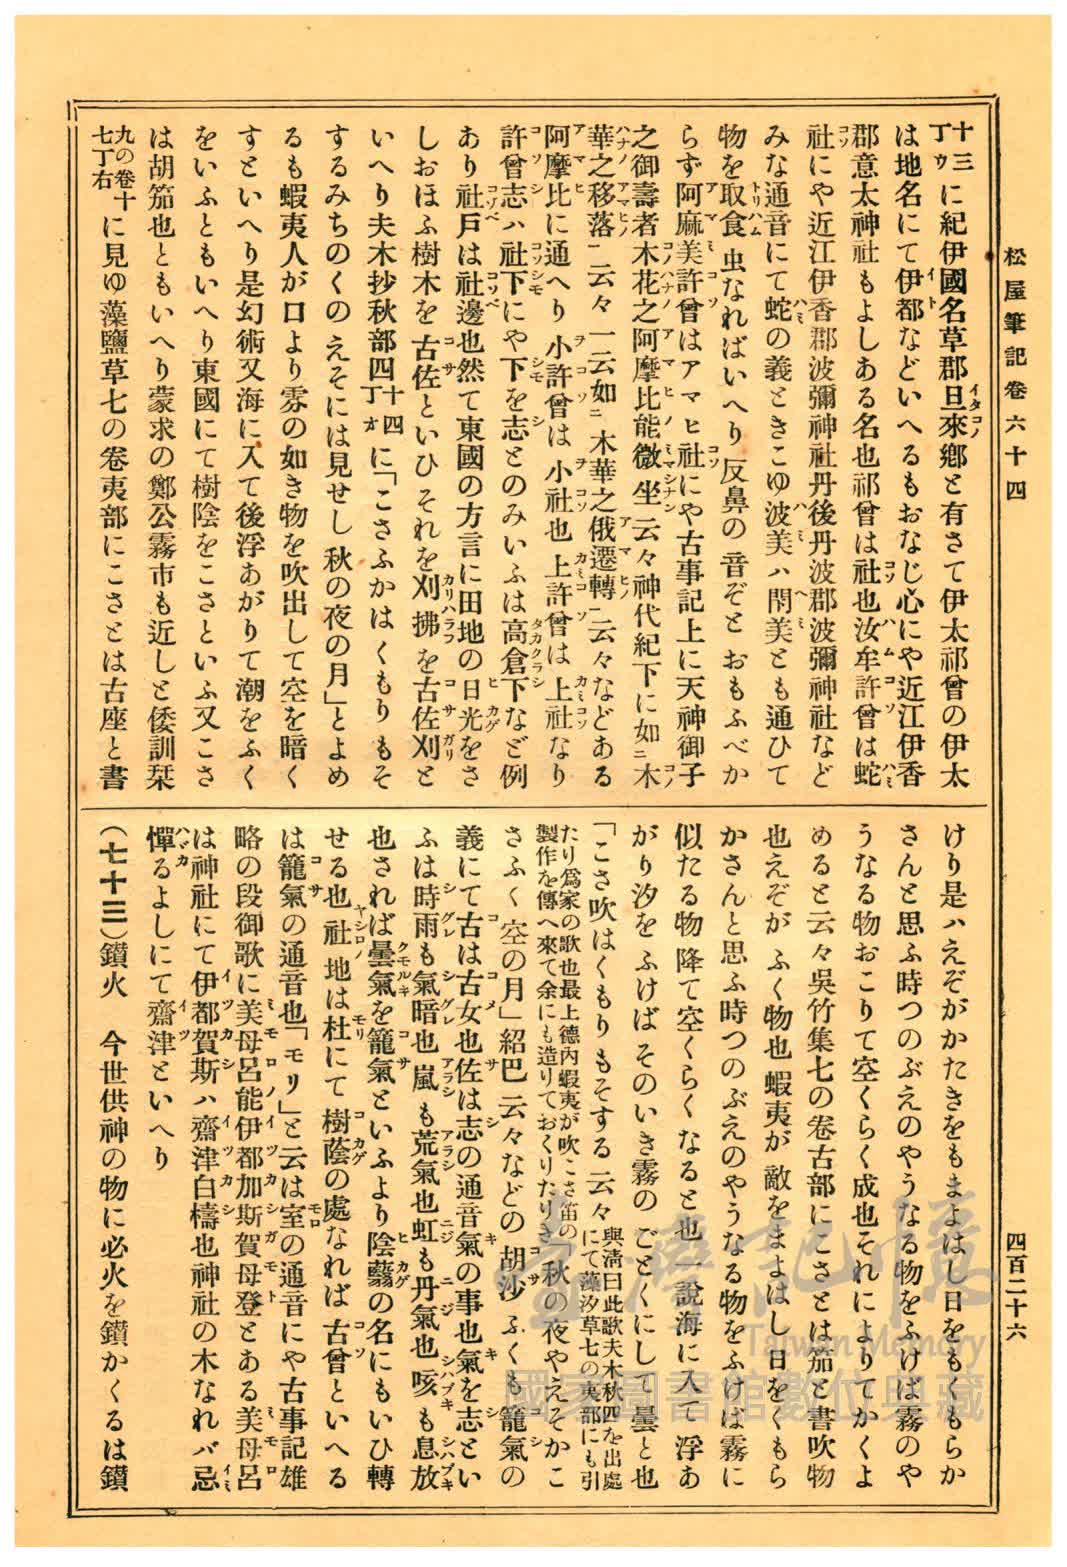 松屋筆記卷六十四
四百二十六
十三丁ウに紀伊國名草郡旦來鄕と有さて伊太祁曾の伊太
は地名にて伊都などいへるもおなじ心にや近江伊香
郡意太神社もよしある名也祁曾は社也汝牟許曾は蛇
社にや近江伊香郡波彌神社丹後丹波郡波彌神社など
みな通音にて蛇の義ときこゆ波美ハ閇美とも通ひて
物を取食虫なればいへり反鼻の音ぞとおもふべか
らず阿麻美許曾はアマヒ社にや古事記上に天神御子
之御壽者木花之阿摩比能微坐云々神代紀下に如ニ木
華之移落ニ云々一云如ニ木華之俄遷轉ニ云々などある
阿摩比に通へり小許曾は小社也上許曾は上社なり
許曾志ハ社下にや下を志とのみいふは高倉下など例
あり社戶は社邊也然て東國の方言に田地の日光をさ
しおほふ樹木を古佐といひそれを刈拂を古佐刈と
いへり夫木抄秋部四十四丁オに「こさふかはくもりもそ
するみちのくのえそには見せし秋の夜の月」とよめ
るも蝦夷人が口より雰の如き物を吹出して空を暗く
すといへり是幻術又海に入て後浮あがりて潮をふく
をいふともいへり東國にて樹陰をこさといふ又こさ
は胡笳也ともいへり蒙求の鄭公霧市も近しと倭訓栞
九の卷十七丁右に見ゆ藻鹽草七の卷夷部にこさとは古座と書
けり是ハえぞがかたきをもまよはし日をもくもらか
さんと思ふ時つのぶえのやうなる物をふけば霧のや
うなる物おこりて空くらく成也それによりてかくよ
めると云々吳竹集七の卷古部にこさとは笳と書吹物
也えぞがふく物也蝦夷が敵をまよはし日をくもら
かさんと思ふ時つのぶえのやうなる物をふけば霧に
似たる物降て空くらくなると也一說海に入て浮あ
がり汐をふけばそのいき霧のごとくにして曇と也
「こさ吹はくもりもそする云々與淸曰此歌夫木秋四を出處にて藻汐草七の夷部にも引
たり爲家の歌也最上德內蝦夷が吹こさ笛の製作を傳へ來て余にも造りておくりたりき秋の夜やえそかこ
さふく空の月」紹巴云々などの胡沙ふくも籠氣の
義にて古は古女也佐は志の通音氣の事也氣を志とい
ふは時雨も氣暗也嵐も荒氣也虹も丹氣也咳も息放
也されば曇氣を籠氣といふより陰蘙の名にもいひ轉
せる也社地は杜にて樹蔭の處なれば古曾といへる
は籠氣の通音也「モリ」と云は室の通音にや古事記雄
略の段御歌に美母呂能伊都加斯賀母登とある美母呂
は神社にて伊都賀斯ハ齋津白檮也神社の木なれバ忌
憚るよしにて齋津といへり
(七十三)鑽火　今世供神の物に必火を鑽かくるは鑽
臺灣記憶
Taiwan Memory
國家圖書館數位典藏